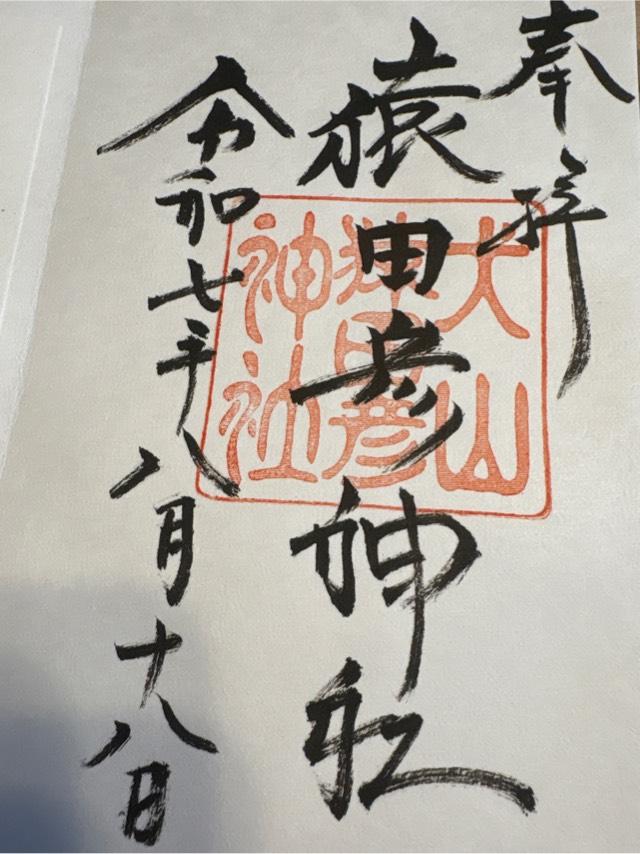 奉拝
猿田彦神社
令和七年八月十八日
犬山
猿田彦
神社